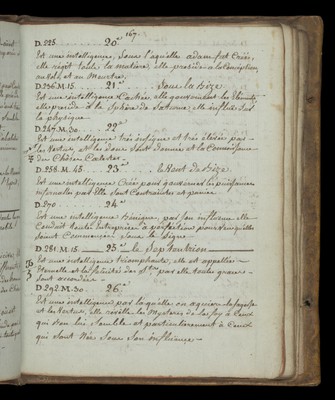 167.
D. 225. 20e
Est une intelligence, sous laquelle adam fut Créé,
elle régit toute la matière, elle préside a la Conception,
au Vol, et au Meurtre.
D. 236. M. 15. 21e ..... Sous la bize
Est une intelligence Cachée, elle gouverne les Elements
elle préside à la Sphère de Saturne, elle influe sur
la physique —
D. 247. M. 30. 22e
Est une intelligence très antique et très élevée par
les Vertus et les dons Sont donnés et la Connaissance
du Choeur Céleste.
D. 258. M. 45. 23e ... le Haut de bize
Est une intelligence Créée pour gouverner les puissances
infernales par Elle Sont Contraintes et punies
D. 270. 24e
Est une intelligence bénigne, par Son influence elle
Conduit toutes Entreprises à perfection pourvu qu'elles
Soient Commencées Sous le Signe —
D. 281. M. 15. 25e le Septentrion
Est une intelligence triomphante, elle est appellée
Eternelle et la félicité des Sts par elle toutes graces
Sont accordées —
D. 292. M. 30. 26e
Est une intelligence par laquelle on acquière la Sagesse
et les Vertus, elle révelle les Mysteres de la foy à Ceux
qui Son les et particulièrement à Ceux
qui Sont Nés Sous Son influence —